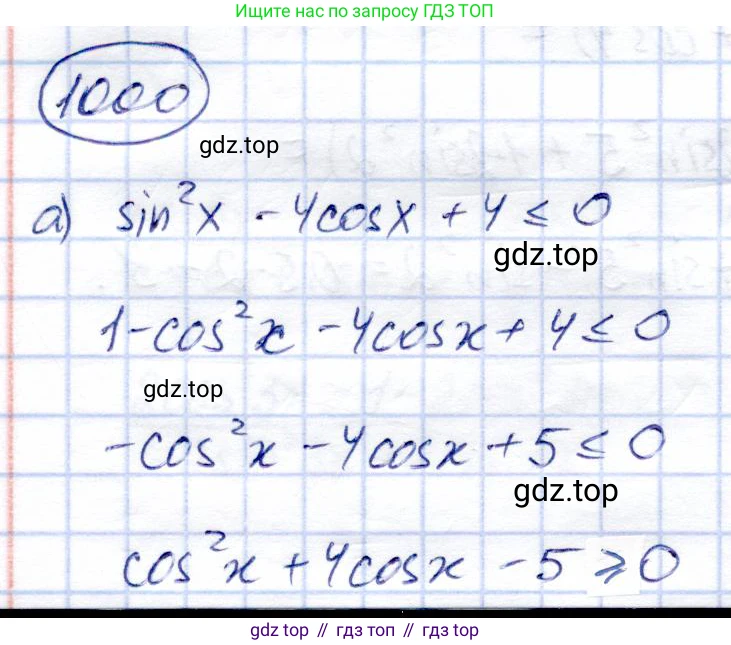 Ищите нас по запросу ГДЗ ТОП
1000
gdz.top
а) sin²x - 4cosx + 4 ≤ 0
gdz.top
1-cos²x - 4cosx + 4 ≤ 0
gdz.top
-cos²x - 4cosx + 5 ≤ 0
gdz.top
cos²x + 4cosx - 5 ⩾ 0
gdz top // гдз топ // gdz top